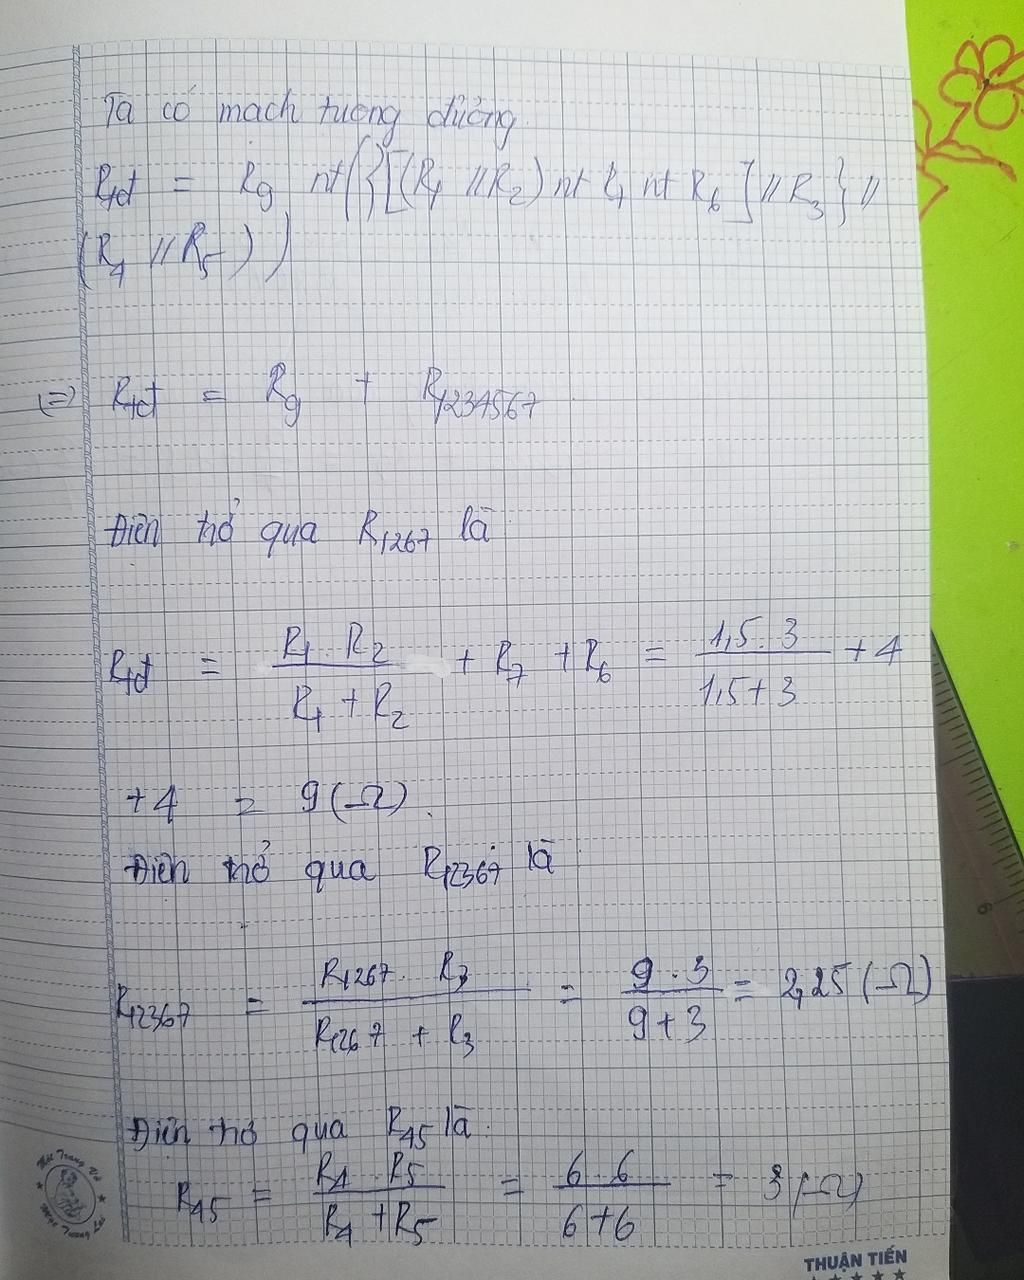 Ta có mạch tương đương
Rtđ = R9 nt ({[(R1 // R2) nt R7 nt R6] // R3} //
(R4 // R5))
=> Rtđ = R9 + R1234567
Điện trở qua R1267 là
Rtđ = R1 . R2 / R1 + R2 + R7 + R6 = 1,5 . 3 / 1,5 + 3 + 4
+ 4 = 9 (Ω).
Điện trở qua R12367 là
R12367 = R1267 . R3 / R1267 + R3 = 9 . 3 / 9 + 3 = 2,25 (Ω)
Điện trở qua R45 là:
R45 = R4 . R5 / R4 + R5 = 6 . 6 / 6 + 6 = 3 (Ω)
6
THUẬN TIẾN